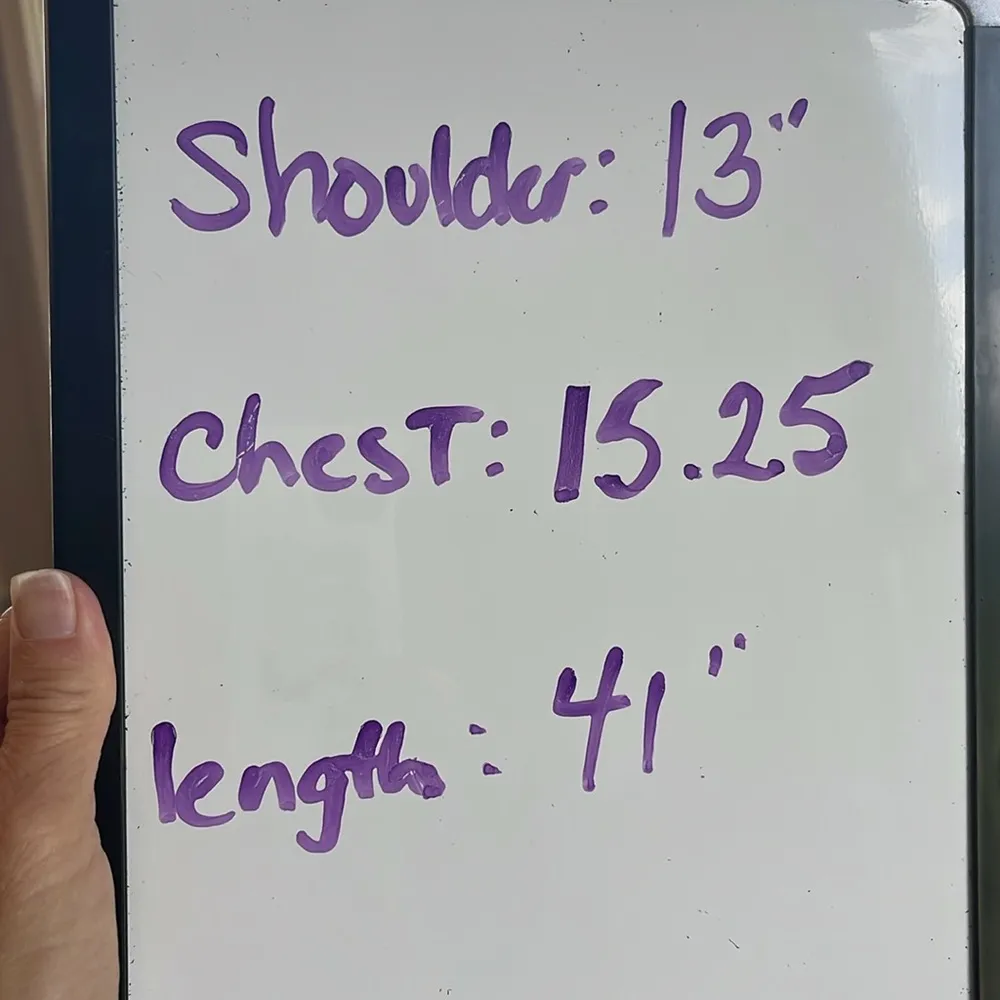 Shoulder: 13"
Chest: 15.25
length: 41"